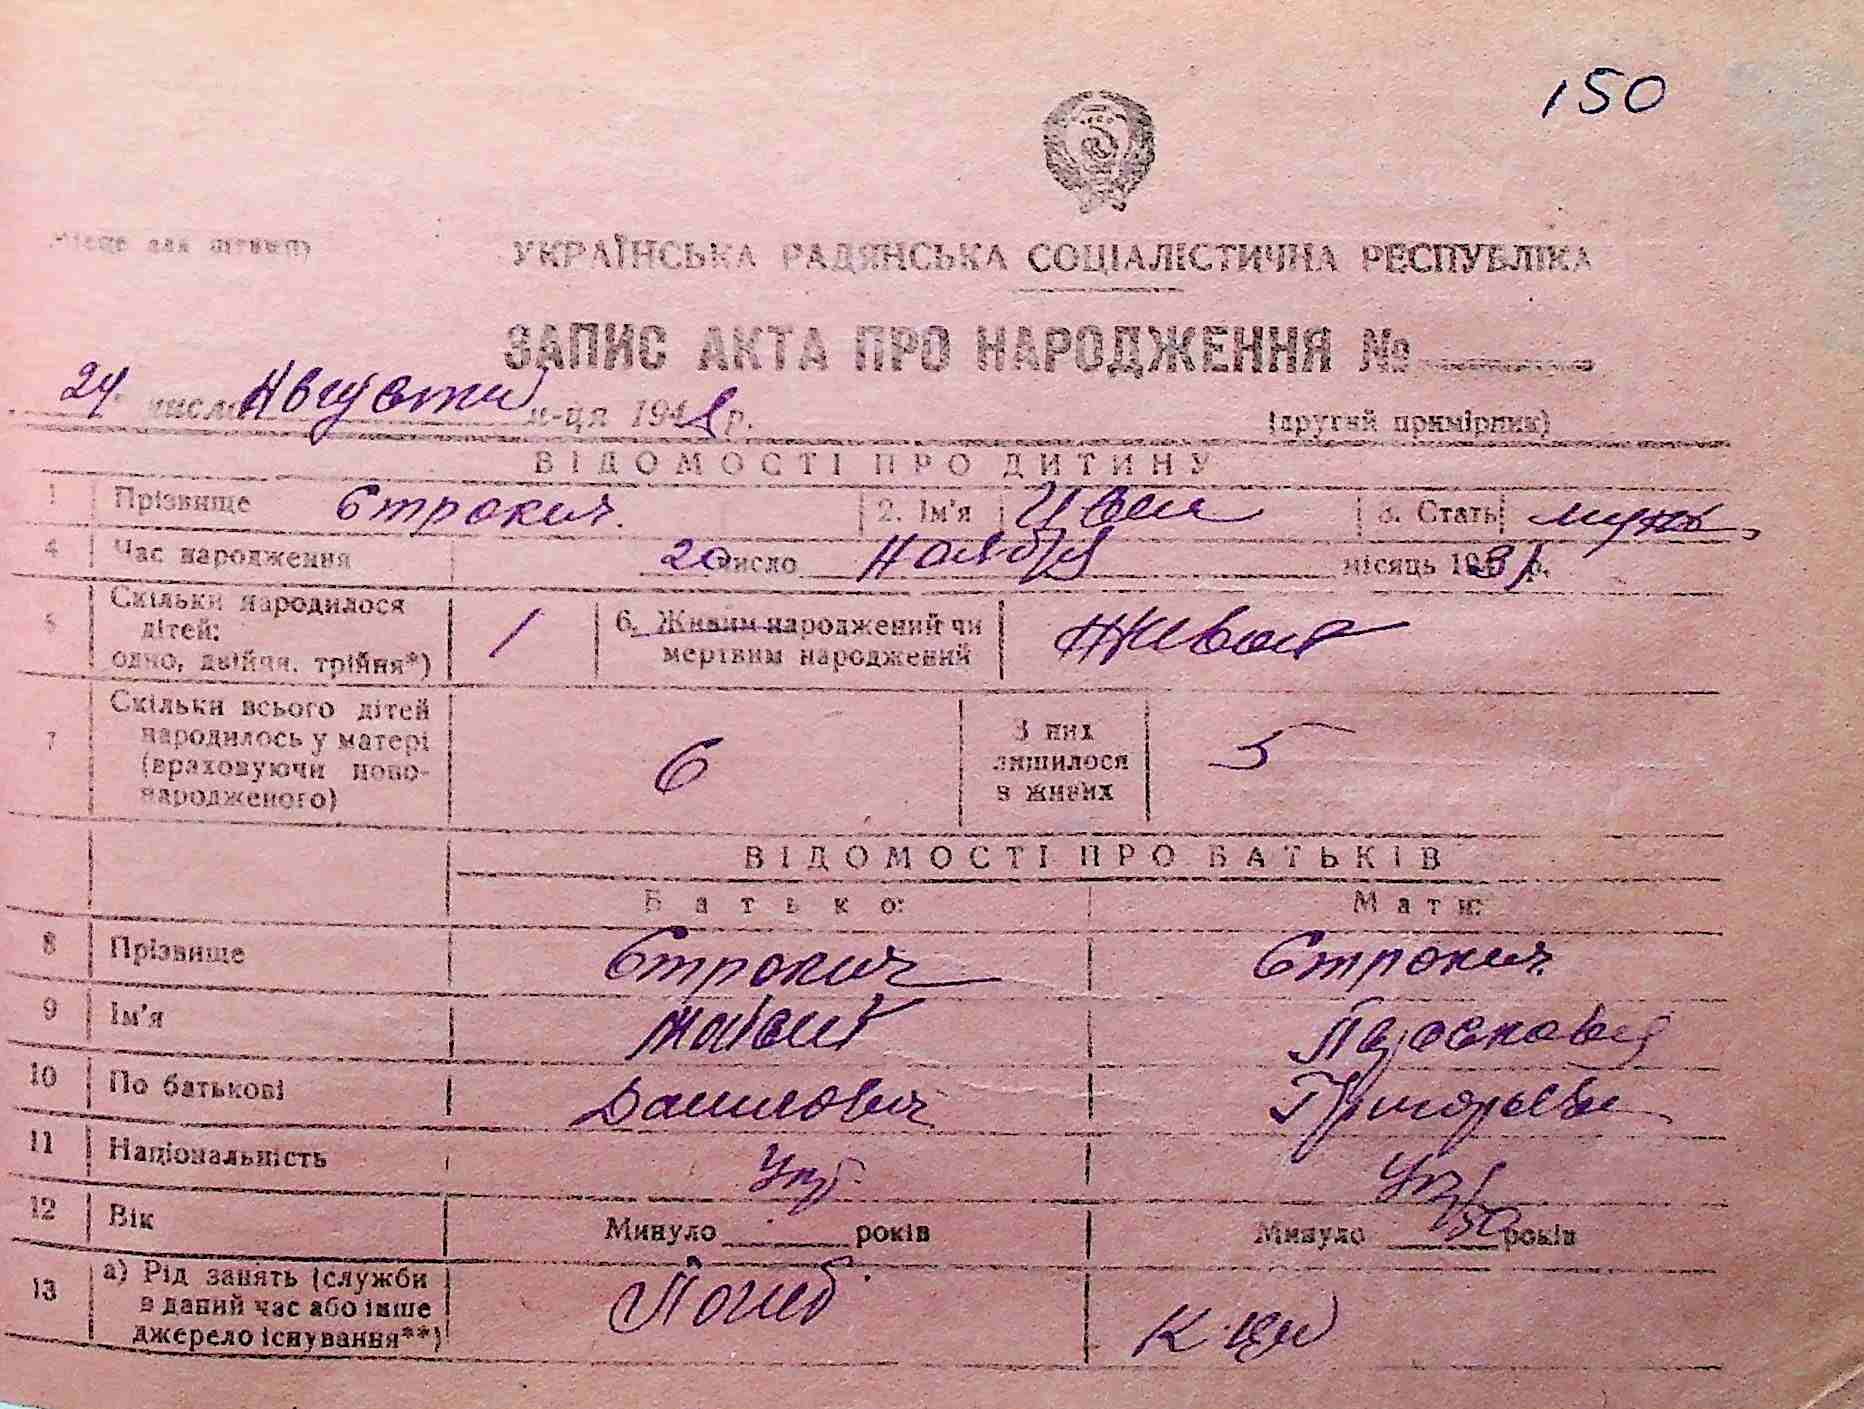 150
Місце для штампу
УКРАЇНСЬКА РАДЯНСЬКА СОЦІАЛІСТИЧНА РЕСПУБЛІКА
ЗАПИС АКТА ПРО НАРОДЖЕННЯ №
24 число Августа м-ця 1948 р. (другий примірник)
ВІДОМОСТІ ПРО ДИТИНУ
1 Прізвище Строкич. 2. Ім'я Иван 3. Стать муж.
4 Час народження 20 число Ноября місяць 1931 р.
5 Скільки народилося
дітей:
одно, двійня, трійня*) 1 6. Живим народжений чи
мертвим народжений Живой
7 Скільки всього дітей
народилось у матері
(враховуючи ново-
народженого) 6 З них
лишилося
в живих 5
ВІДОМОСТІ ПРО БАТЬКІВ
Батько: Мати:
8 Прізвище Строкич Строкич
9 Ім'я
10 По батькові Данилович Григорьевн
11 Національність Укр. Укр
12 Вік Минуло року років Минуло 50 років
13 а) Рід занять (служби
в даний час або інше
джерело існування**) Погиб К-ца